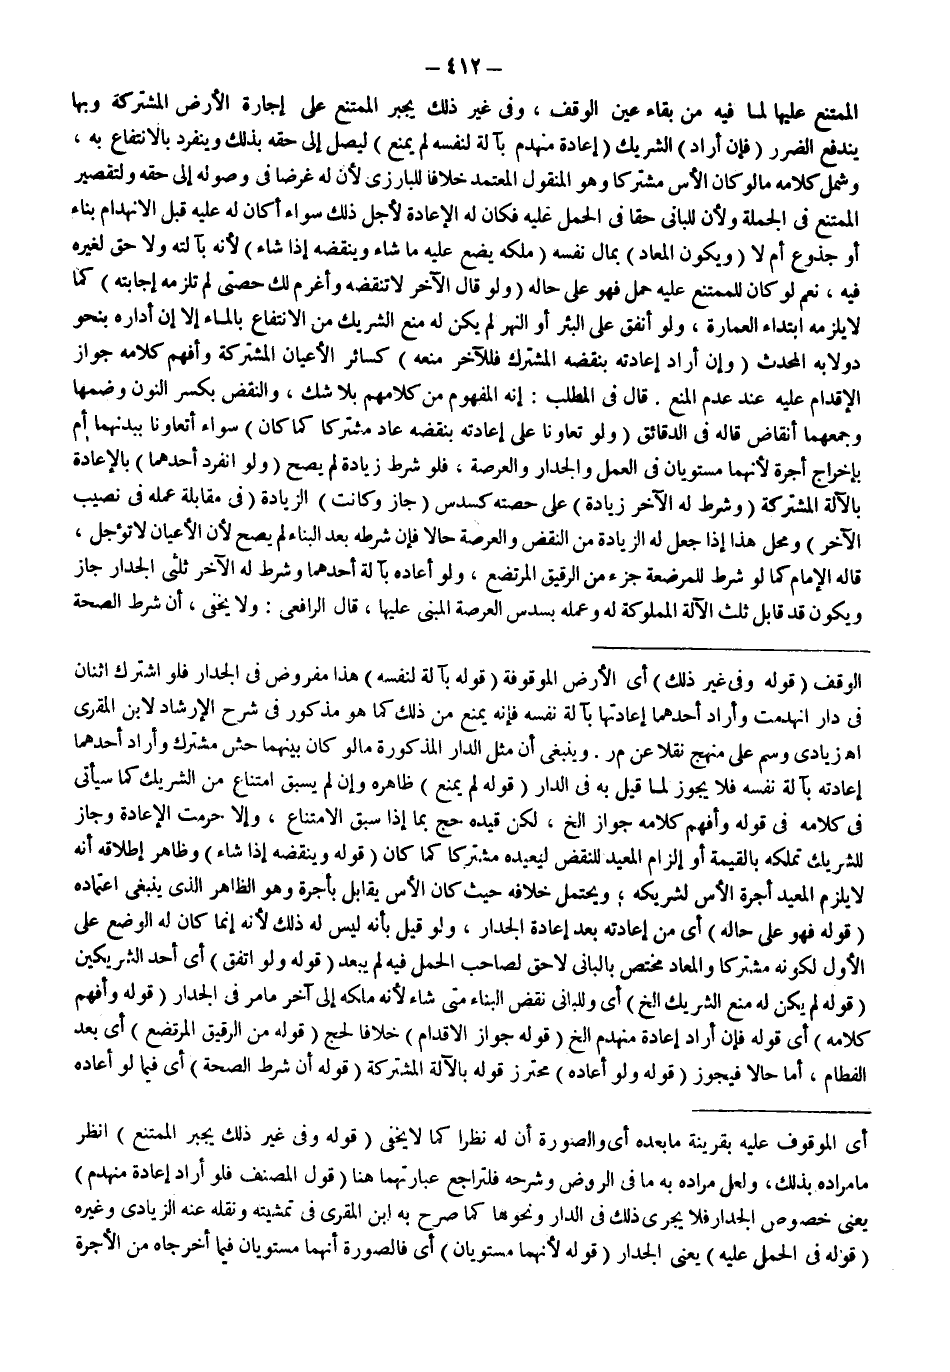 — ٤١٢ —
الممتنع عليها لما فيه من بقاء عين الوقف ، وفى غير ذلك يجبر الممتنع على إجارة الأرض المشتركة وبها
يندفع الضرر ( فإن أراد ) الشريك ( إعادة منهدم بآلة لنفسه لم يمنع ) ليصل إلى حقه بذلك وينفرد بالانتفاع به ،
وشمل كلامه مالو كان الأس مشتركا وهو المنقول المعتمد خلافا للبارزى لأن له غرضا فى وصوله إلى حقه ولتقصير
الممتنع فى الجملة ولأن للبانى حقا فى الحمل عليه فكان له الإعادة لأجل ذلك سواء أكان له عليه قبل الانهدام بناء
أو جذوع أم لا ( ويكون المعاد ) بمال نفسه ( ملكه يضع عليه ما شاء وينقضه إذا شاء ) لأنه بآلته ولا حق لغيره
فيه ، نعم لو كان للممتنع عليه حمل فهو على حاله ( ولو قال الآخر لاتنقضه وأغرم لك حصتى لم تلزمه إجابته ) كما
لايلزمه ابتداء العمارة ، ولو أنفق على البئر أو النهر لم يكن له منع الشريك من الانتفاع بالماء إلا إن أداره بنحو
دولابه المحدث ( وإن أراد إعادته بنقضه المشترك فللآخر منعه ) كسائر الأعيان المشتركة وأفهم كلامه جواز
الإقدام عليه عند عدم المنع . قال فى المطلب : إنه المفهوم من كلامهم بلا شك ، والنقض بكسر النون وضمها
وجمعهما أنقاض قاله فى الدقائق ( ولو تعاونا على إعادته بنقضه عاد مشتركا كما كان ) سواء أتعاونا ببدنهما أم
بإخراج أجرة لأنهما مستويان فى العمل والجدار والعرصة ، فلو شرط زيادة لم يصح ( ولو انفرد أحدهما ) بالإعادة
بالآلة المشتركة ( وشرط له الآخر زيادة ) على حصته كسدس ( جاز وكانت ) الزيادة ( فى مقابلة عمله فى نصيب
الآخر ) ومحل هذا إذا جعل له الزيادة من النقض والعرصة حالا فإن شرطه بعد البناء لم يصح لأن الأعيان لاتؤجل ،
قاله الإمام كما لو شرط للمرضعة جزء من الرقيق المرتضع ، ولو أعاده بآلة أحدهما وشرط له الآخر ثلثى الجدار جاز
ويكون قد قابل ثلث الآلة المملوكة له وعمله بسدس العرصة المبنى عليها ، قال الرافعى : ولا يخفى ، أن شرط الصحة
الوقف ( قوله وفى غير ذلك ) أى الأرض الموقوفة ( قوله بآلة لنفسه ) هذا مفروض فى الجدار فلو اشترك اثنان
فى دار انهدمت وأراد أحدهما إعادتها بآلة نفسه فإنه يمنع من ذلك كما هو مذكور فى شرح الإرشاد لابن المقرى
اه زيادى وسم على منهج نقلا عن م ر . وينبغى أن مثل الدار المذكورة مالو كان بينهما حش مشترك وأراد أحدهما
إعادته بآلة نفسه فلا يجوز لما قيل به فى الدار ( قوله لم يمنع ) ظاهره وإن لم يسبق امتناع من الشريك كما سيأتى
فى كلامه فى قوله وأفهم كلامه جواز الخ ، لكن قيده حج بما إذا سبق الامتناع ، وإلا حرمت الإعادة وجاز
للشريك تملكه بالقيمة أو إلزام المعيد للنقض ليعيده مشتركا كما كان ( قوله وينقضه إذا شاء ) وظاهر إطلاقه أنه
لايلزم المعيد أجرة الأس لشريكه ؛ ويحتمل خلافه حيث كان الأس يقابل بأجرة وهو الظاهر الذى ينبغى اعتماده
( قوله فهو على حاله ) أى من إعادته بعد إعادة الجدار ، ولو قيل بأنه ليس له ذلك لأنه إنما كان له الوضع على
الأول لكونه مشتركا والمعاد مختص بالبانى لاحق لصاحب الحمل فيه لم يبعد ( قوله ولو اتفق ) أى أحد الشريكين
( قوله لم يكن له منع الشريك الخ ) أى وللبانى نقض البناء متى شاء لأنه ملكه إلى آخر مامر فى الجدار ( قوله وأفهم
كلامه ) أى قوله فإن أراد إعادة منهدم الخ ( قوله جواز الاقدام ) خلافا لحج ( قوله من الرقيق المرتضع ) أى بعد
الفطام ، أما حالا فيجوز ( قوله ولو أعاده ) محترز قوله بالآلة المشتركة ( قوله أن شرط الصحة ) أى فيما لو أعاده
أى الموقوف عليه بقرينة مابعده أى والصورة أن له نظرا كما لايخفى ( قوله وفى غير ذلك يجبر الممتنع ) انظر
مامراده بذلك ، ولعل مراده به ما فى الروض وشرحه فلتراجع عبارتهما هنا ( قول المصنف فلو أراد إعادة منهدم )
يعنى خصوص الجدار فلا يجرى ذلك فى الدار ونحوها كما صرح به ابن المقرى فى تمشيته ونقله عنه الزيادى وغيره
( قوله فى الحمل عليه ) يعنى الجدار ( قوله لأنهما مستويان ) أى فالصورة أنهما مستويان فيما أخرجاه من الأجرة